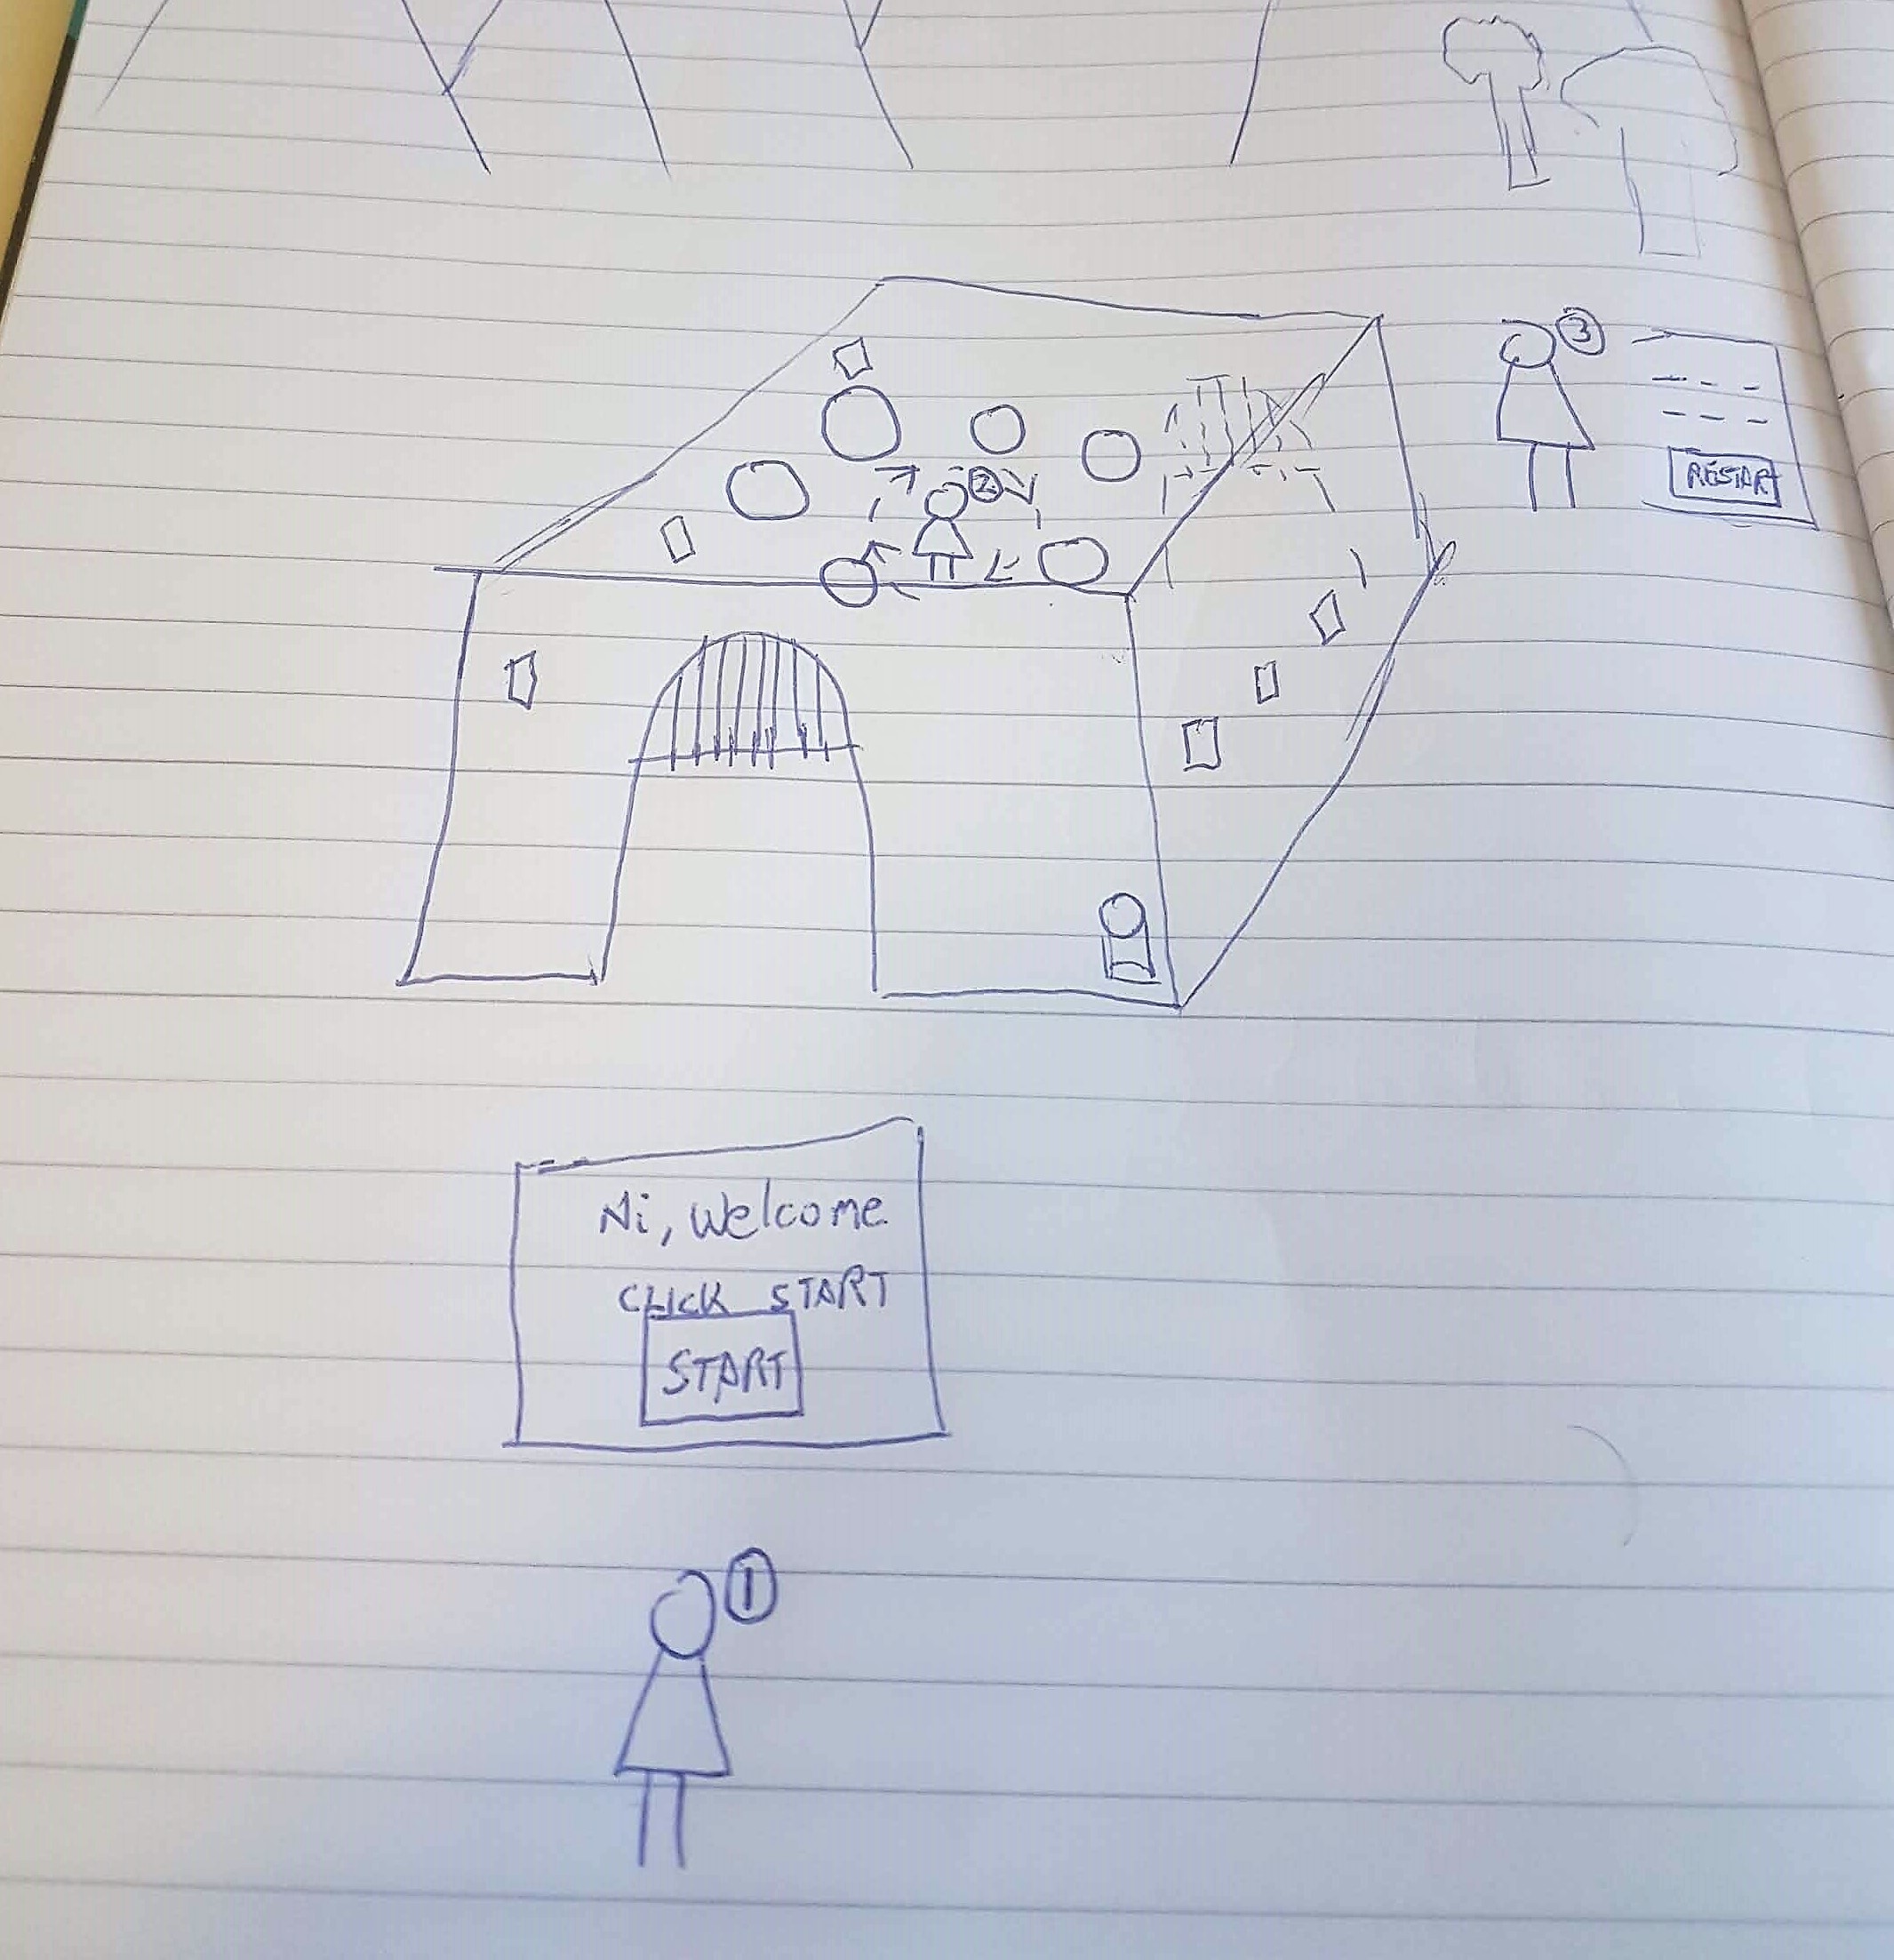 ③
RESTART
②
Hi, Welcome
CLICK START
START
①